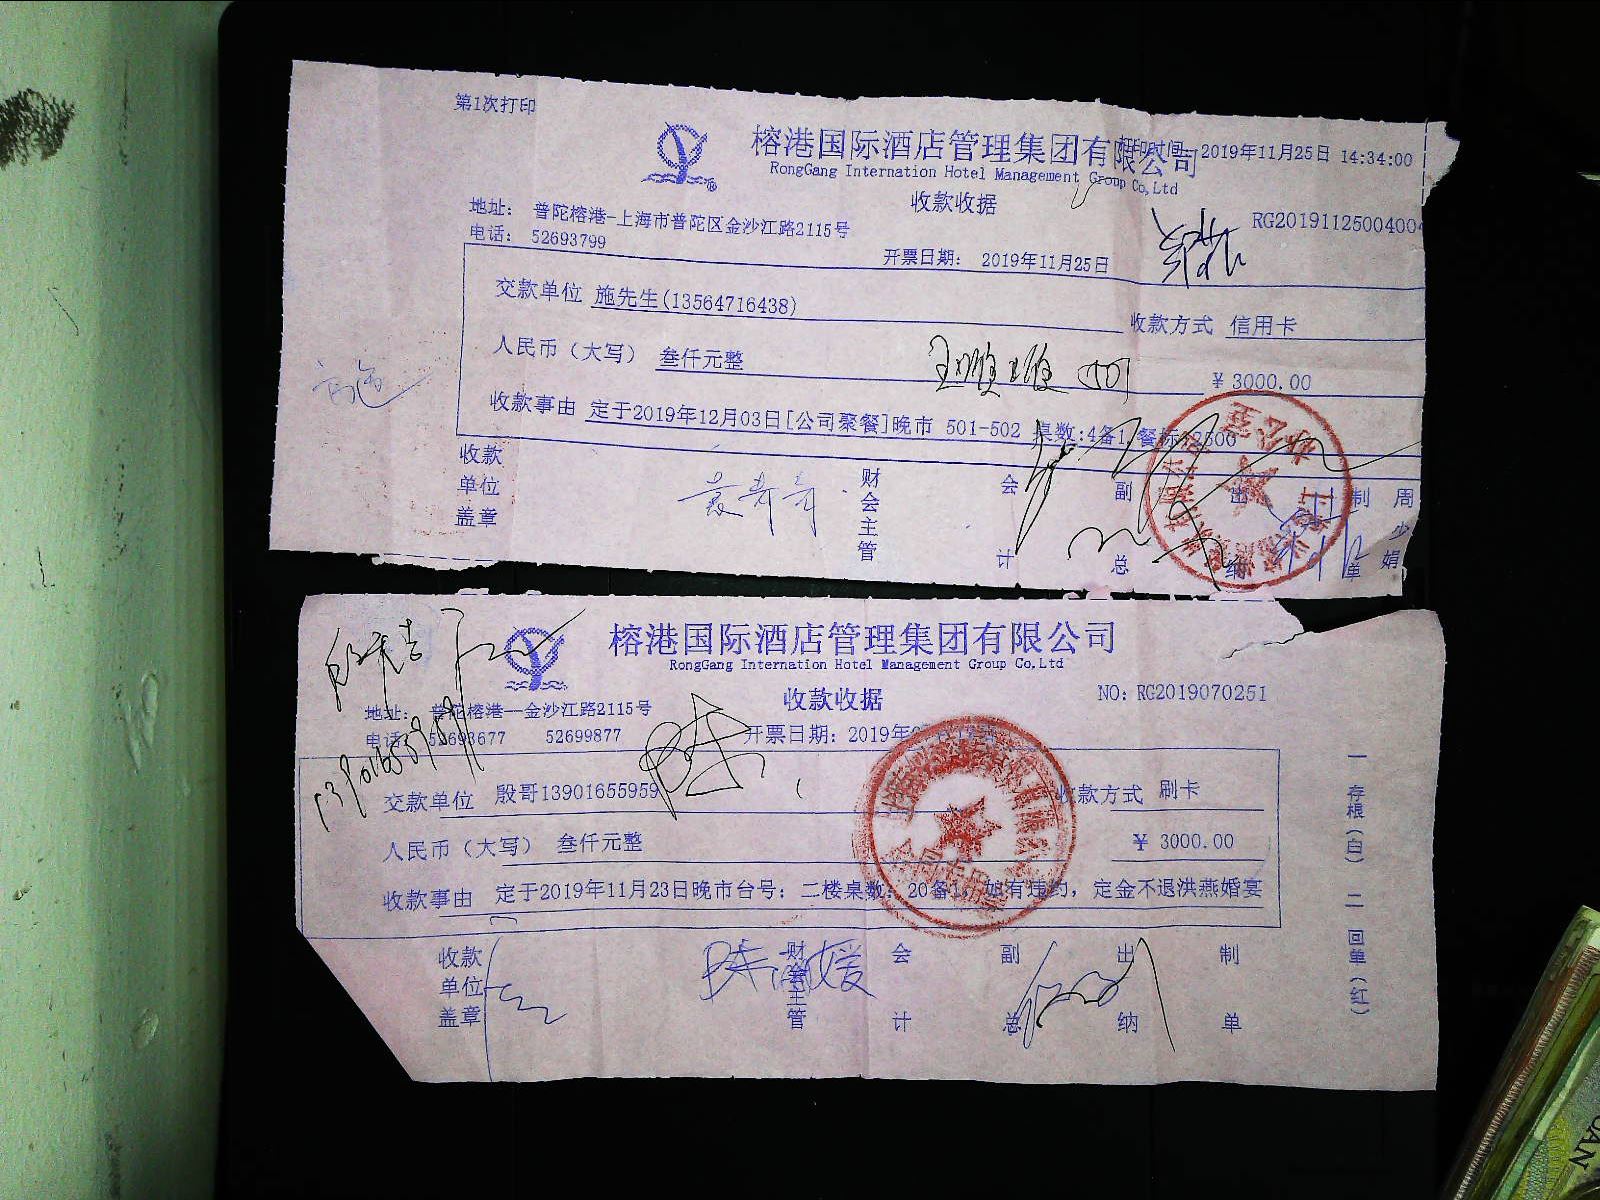 第1次打印
榕港国际酒店管理集团有限公司
打印时间: 2019年11月25日 14:34:00
RongGang Internation Hotel Management Group Co,Ltd
收款收据
RG2019112500400
地址: 普陀榕港-上海市普陀区金沙江路2115号
电话: 52693799
开票日期: 2019年11月25日
交款单位 施先生(13564716438)
收款方式 信用卡
人民币（大写） 叁仟元整
¥ 3000.00
收款事由 定于2019年12月03日[公司聚餐]晚市 501-502 桌数:4备1,餐标
收款单位盖章
财会主管
会计
副总
出纳
制单
周少娟
榕港国际酒店管理集团有限公司
RongGang Internation Hotel Management Group Co,Ltd
收款收据
NO: RG2019070251
地址: 普陀榕港--金沙江路2115号
电话: 52693677 52699877
开票日期: 2019年
交款单位 殷哥13901655959
收款方式 刷卡
人民币（大写） 叁仟元整
¥ 3000.00
收款事由 定于2019年11月23日晚市台号: 二楼桌数: 20备1, 如有违约, 定金不退洪燕婚宴
收款单位盖章
财会主管
会计
副总
出纳
制单
一存根(白) 二回单(红)